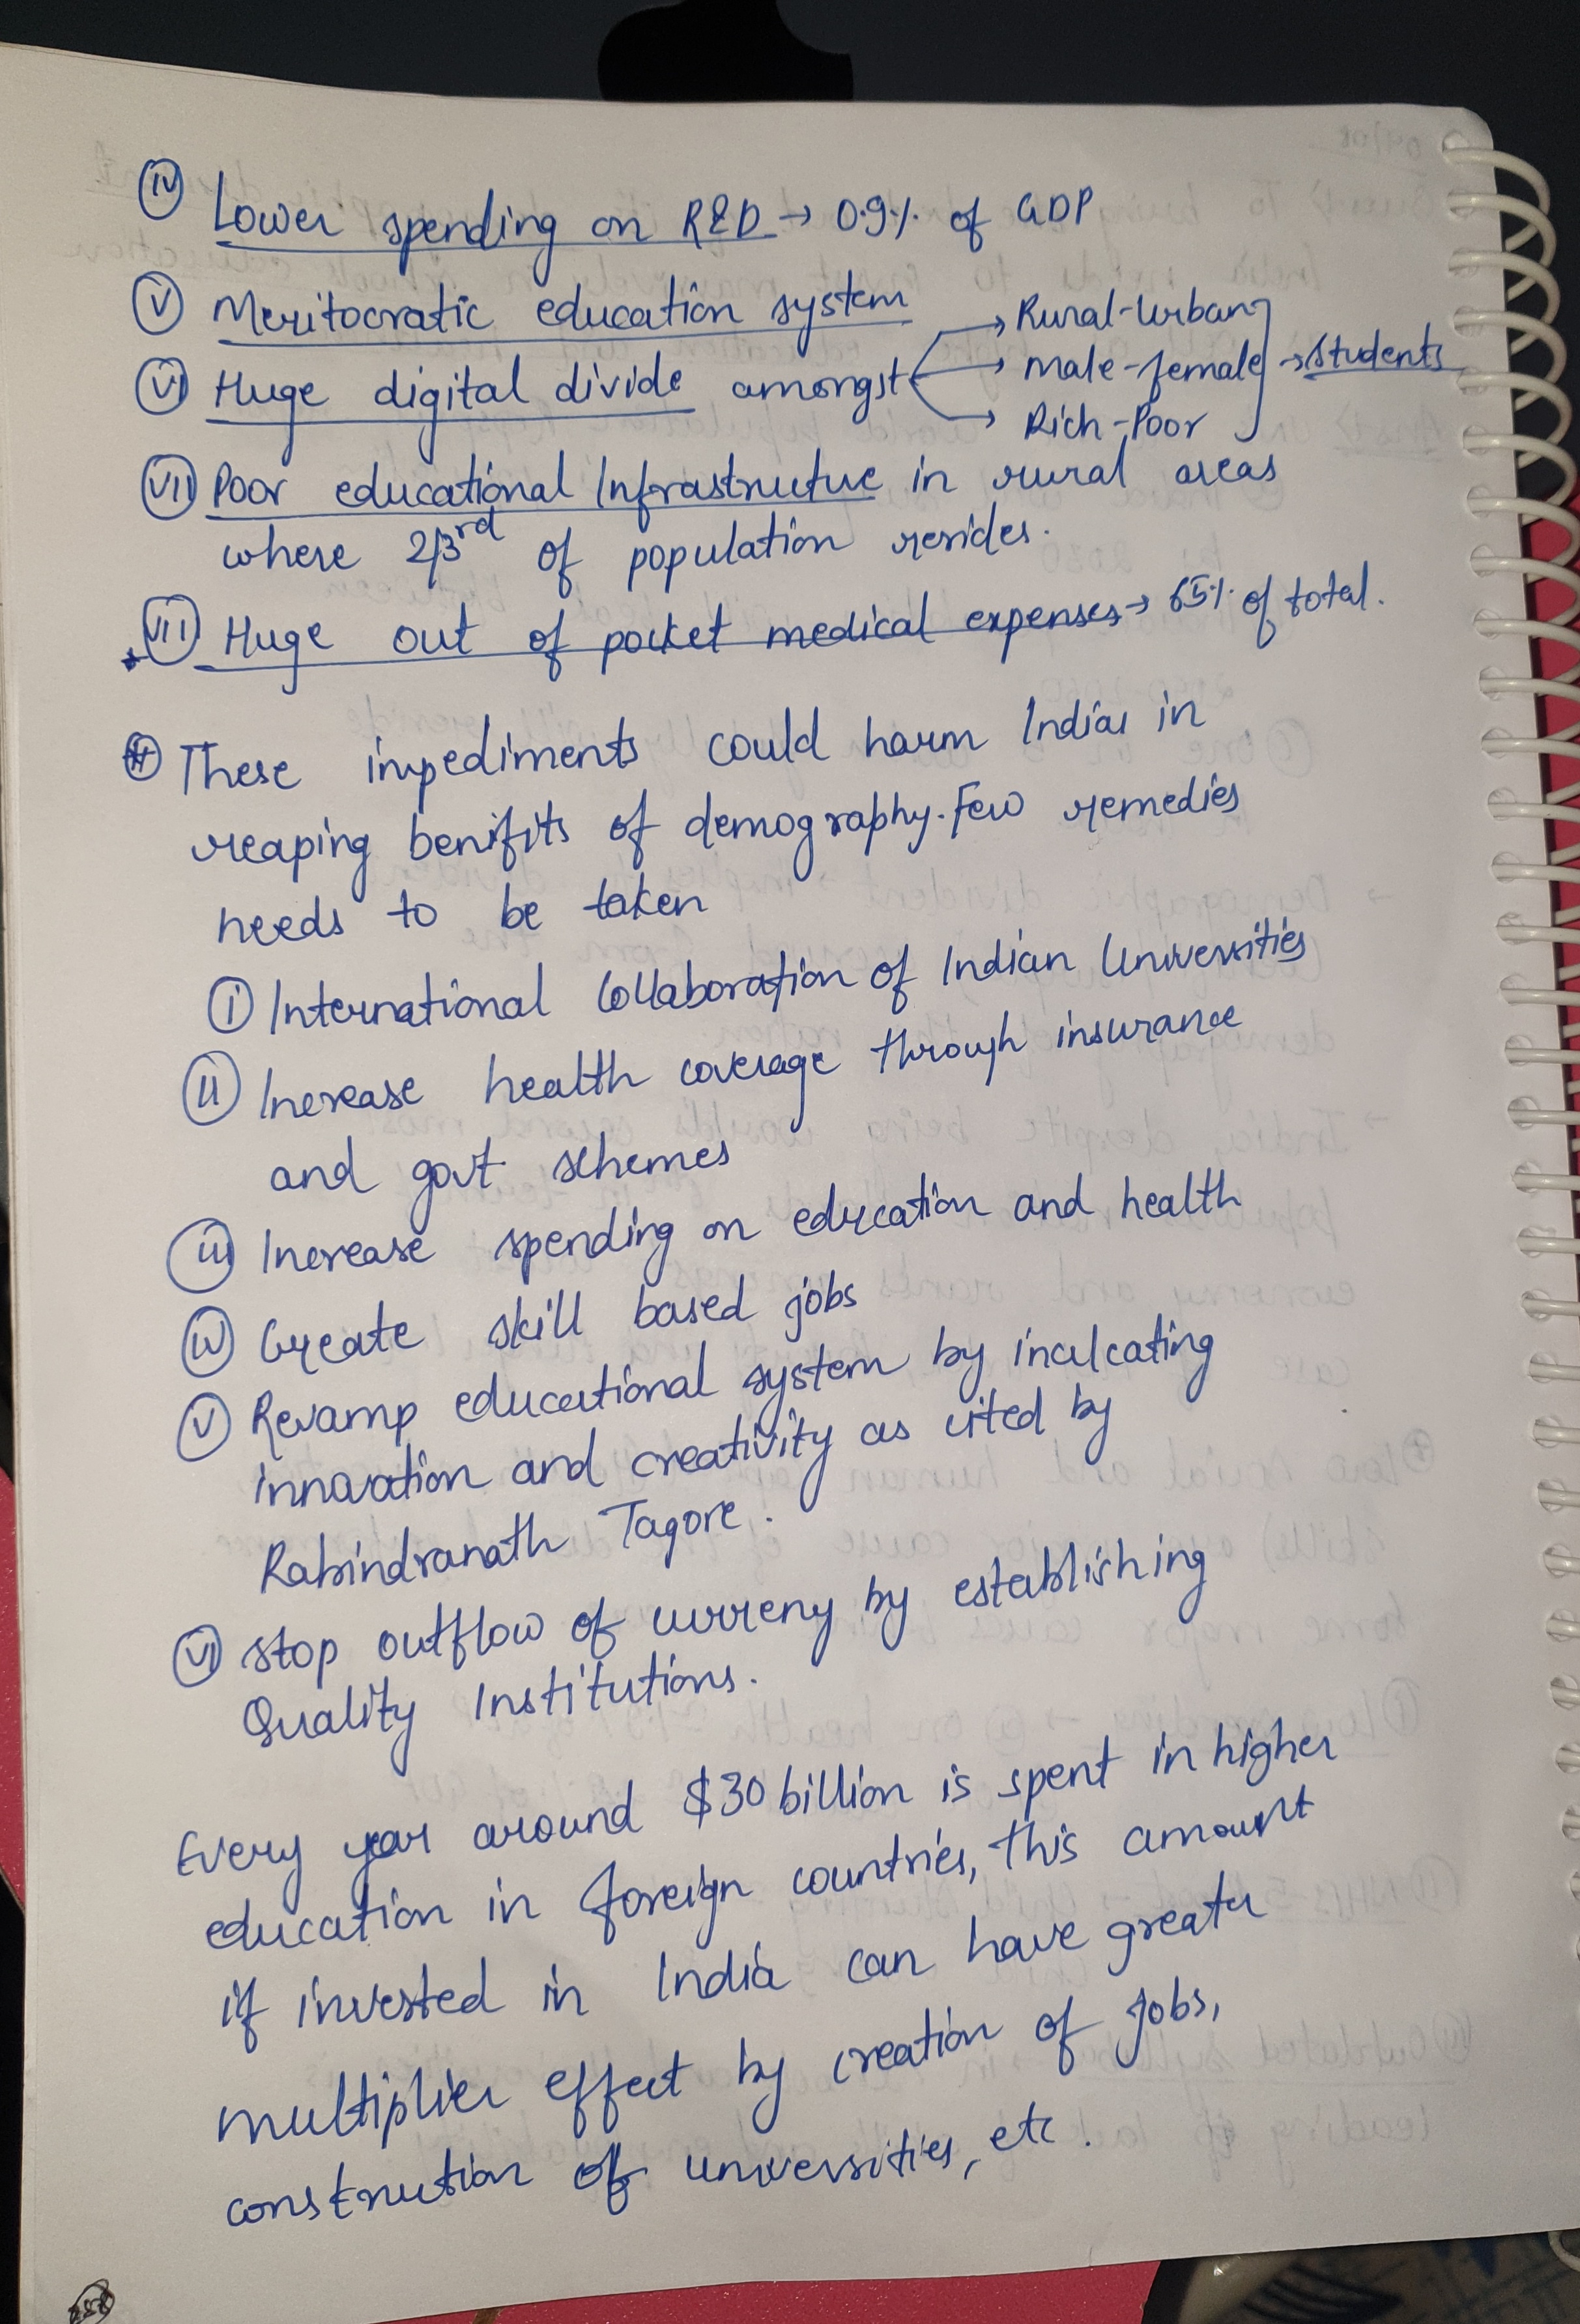 (iv) Lower spending on R&D → 0.9% of GDP
(v) Meritocratic education system
(vi) Huge digital divide amongst → Rural-Urban → Male-female → Rich-Poor → students
(vii) Poor educational Infrastructure in rural areas
where 2/3rd of population resides.
(vii) Huge out of pocket medical expenses → 65% of total.
# These impediments could harm India in
reaping benifits of demography. Few remedies
needs to be taken
(i) International Collaboration of Indian Universities
(ii) Increase health coverage through insurance
and govt schemes
(iii) Increase spending on education and health
(iv) Create skill based jobs
(v) Revamp educational system by inculcating
innovation and creativity as cited by
Rabindranath Tagore.
(vi) Stop outflow of curreny by establishing
Quality Institutions.
Every year around $30 billion is spent in higher
education in foreign countries, this amount
if invested in India can have greater
multiplier effect by creation of jobs,
construction of universities, etc.